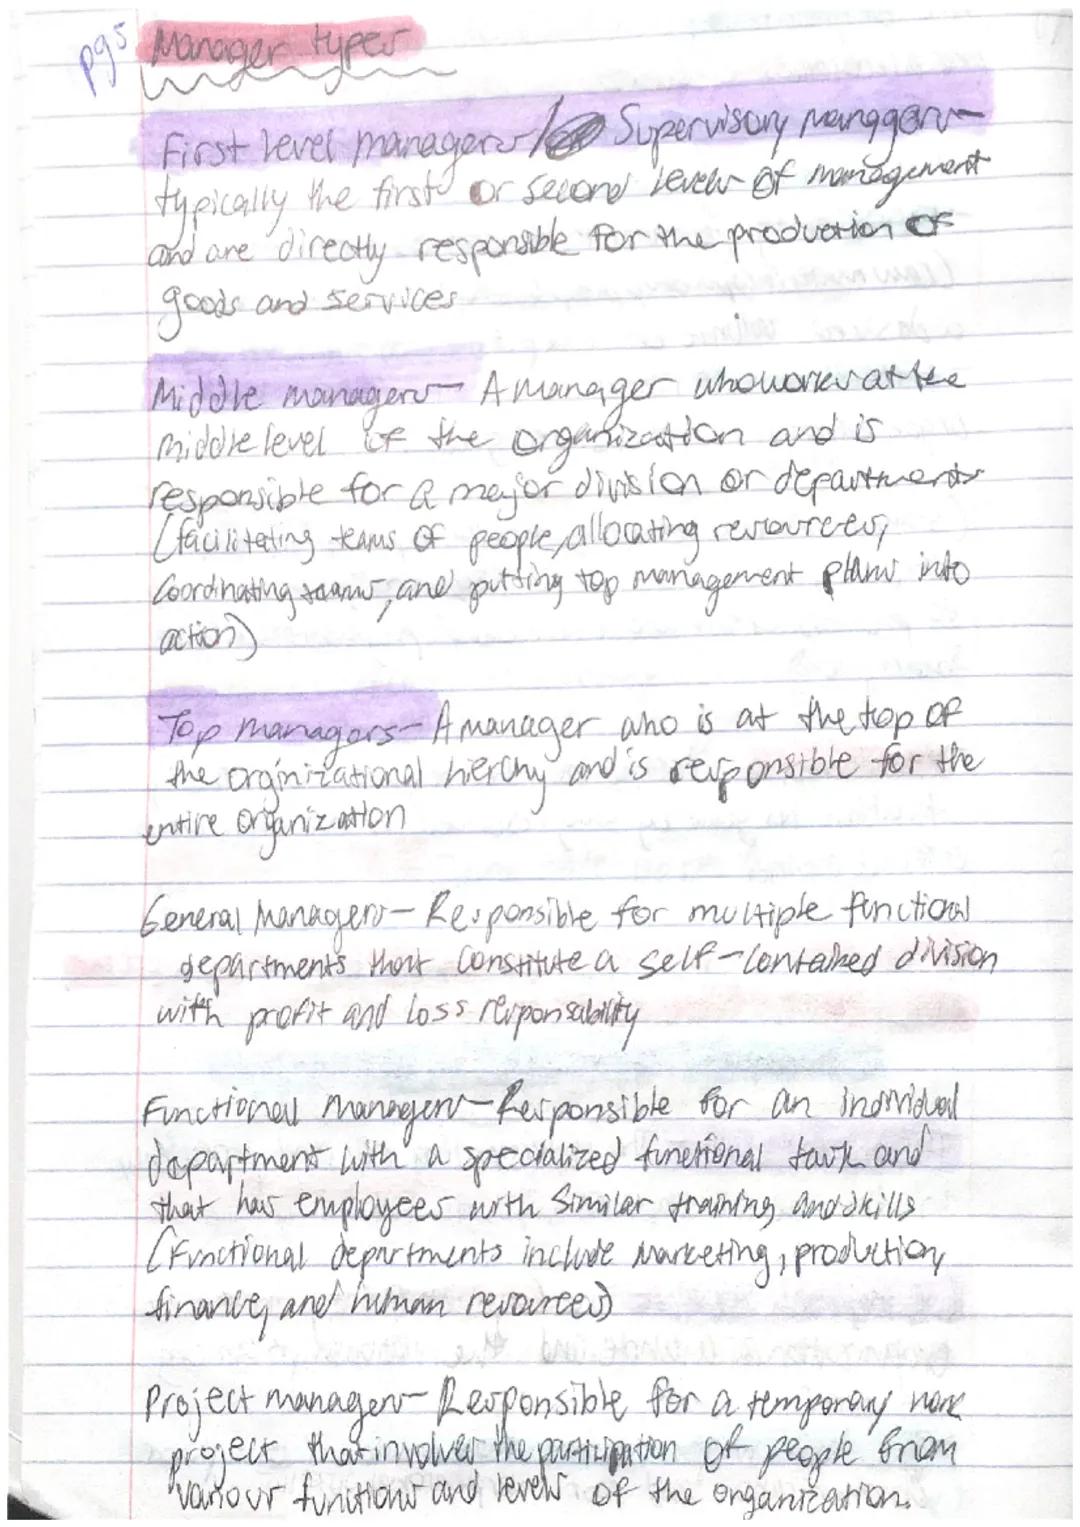 pg5 Manager types
First level managers/ Supervisory managers-
typically the first or second levels of management
and are directly responsible for the production of
goods and services
Middle managers- A manager who works at the
middle level of the organization and is
responsible for a major division or departments
(facilitating teams of people, allocating resources,
Coordinating teams, and putting top management plans into
action)
Top managers- A manager who is at the top of
the orginizational hierchy and is responsible for the
entire organization
General Managers- Responsible for multiple functional
departments that constitute a self-contained division
with profit and loss responsability
Functional managers- Responsible for an individual
department with a specialized functional task and
that has employees with similar training and skills
(Functional departments include marketing, production,
finance, and human resources)
Project managers- Responsible for a temporary work
project that involves the participation of people from
various functions and levels of the organization.